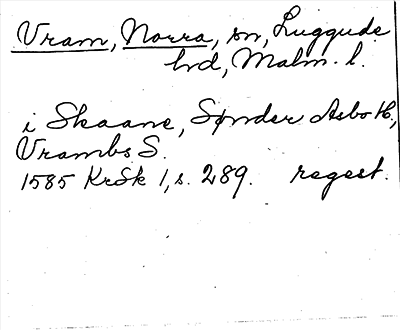 Vram, Norra, sn, Luggude
hrd, Malm. l.
i Skaane, Sønder Asbo H.,
Vrambs S.
1585 KrSk 1, s. 289. regest.